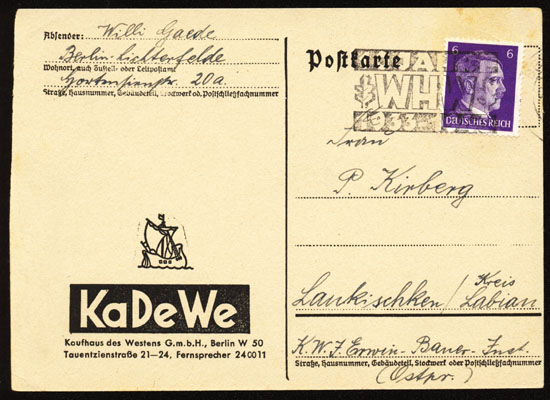 Absender: Willi Gaede
Berlin-Lichterfelde
Wohnort, auch Zustell- oder Leitpostamt
20a.
Straße, Hausnummer, Gebäudeteil, Stockwerk od. Postschließfachnummer
KaDeWe
Kaufhaus des Westens G.m.b.H., Berlin W 50
Tauentzienstraße 21–24, Fernsprecher 24 00 11
Postkarte
WH
1933
6 6
DEUTSCHES REICH
Frau
P. Kirberg
Laukischken / Kreis Labiau
K.W.I. Erwin-Bauer-Inst.
Straße, Hausnummer, Gebäudeteil, Stockwerk oder Postschließfachnummer
(Ostpr.)